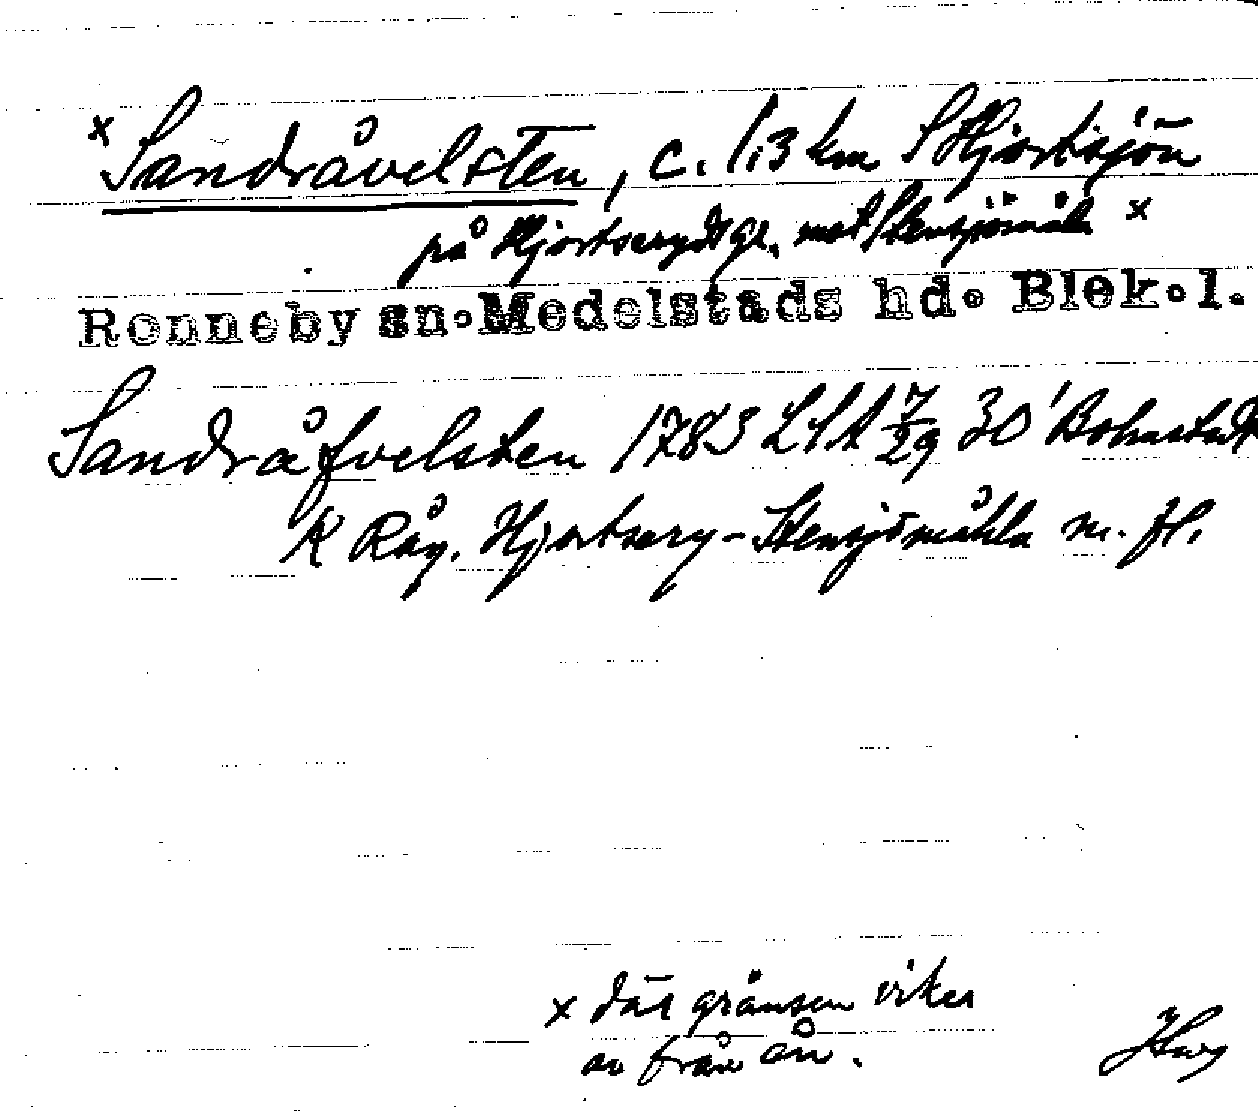 x Sandråvelsten, c. 1,3 km S Hjortsjön
på Hjortserydsgr. mot Stensjömåla x
Ronneby sn. Medelstads hd. Blek. l.
Sandråfvelsten 1783 LSA 7/29 30' Bohnstedt
K Råg. Hjortsery - Stensjömåhla m. fl.
x där gränsen viker
av från ån.